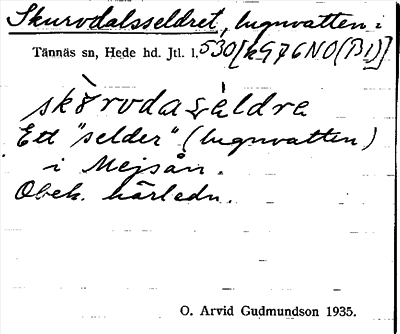 Skurvdalsseldret, lugnvatten:
Tännäs sn, Hede hd. Jtl. l. 530[k976NO(B1)]
Ett "selder" (lugnvatten)
i Mejsån.
Obek. härledn.
O. Arvid Gudmundson 1935.